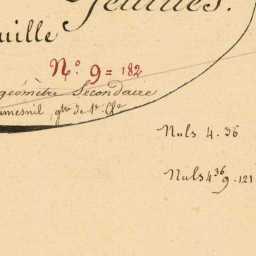 Feuilles.
uille
N.º 9 = 182
géomètre Secondaire
umesnil, gtre de 1re Cle
Nuls 4. 36
Nuls 4 36 9. 121